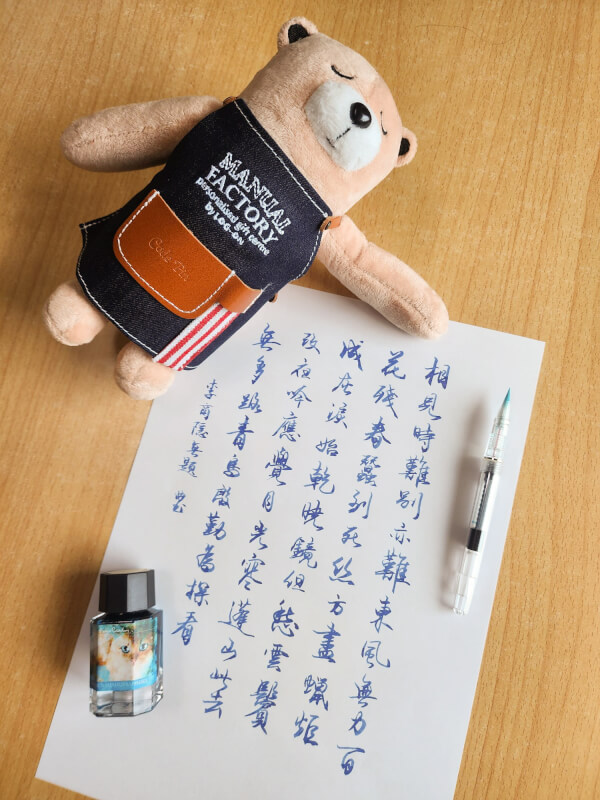 MANUAL
FACTORY
personalised gift centre
by LOG-ON
相見時難別亦難東風無力百
花殘春蠶到死絲方盡蠟炬
成灰淚始乾曉鏡但愁雲鬢
改夜吟應覺月光寒蓬山此去
無多路青鳥殷勤為探看
李商隱無題